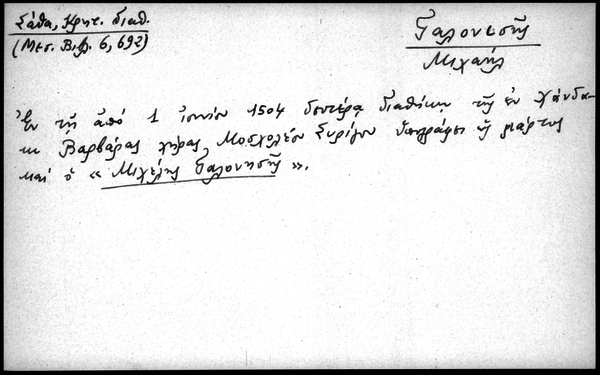 Σάθα, Κρητ. διαθ.
(Μεσ. Βιβ. 6, 692)
Γαλονισῆς
Μιχαήλ
Ἐν τῇ ἀπό 1 ἰουνίου 1504 δευτέρᾳ διαθήκῃ τῆς ἐν Χάνδα-
κι Βαρβάρας χήρας Μοσχολέου Συρίγου ὑπογράφει ὡς μάρτυς
καί ὁ « Μιχέλης Γαλονησῆς ».